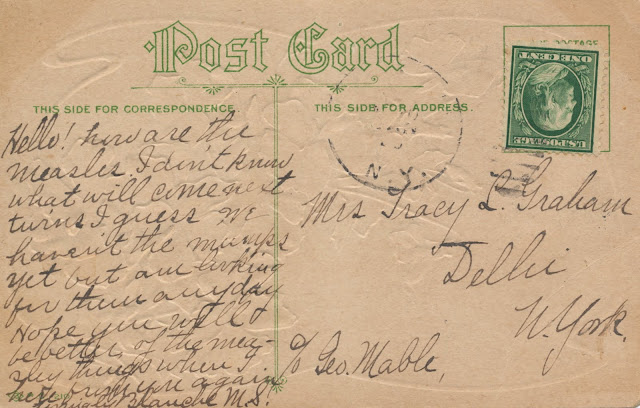 Post Card
THIS SIDE FOR CORRESPONDENCE.
Hello! how are the
measles. I don't know
what will come next
twins I guess We
havent the mumps
yet but am looking
for them any day
Hope you will
be better of the mea-
sley things when I
hear from you again
Blanche M.S.
THIS SIDE FOR ADDRESS.
N.Y.
U.S. POSTAGE
ONE CENT
Mrs Tracy L. Graham
Delhi
N. York.
c/o Geo. Mable,